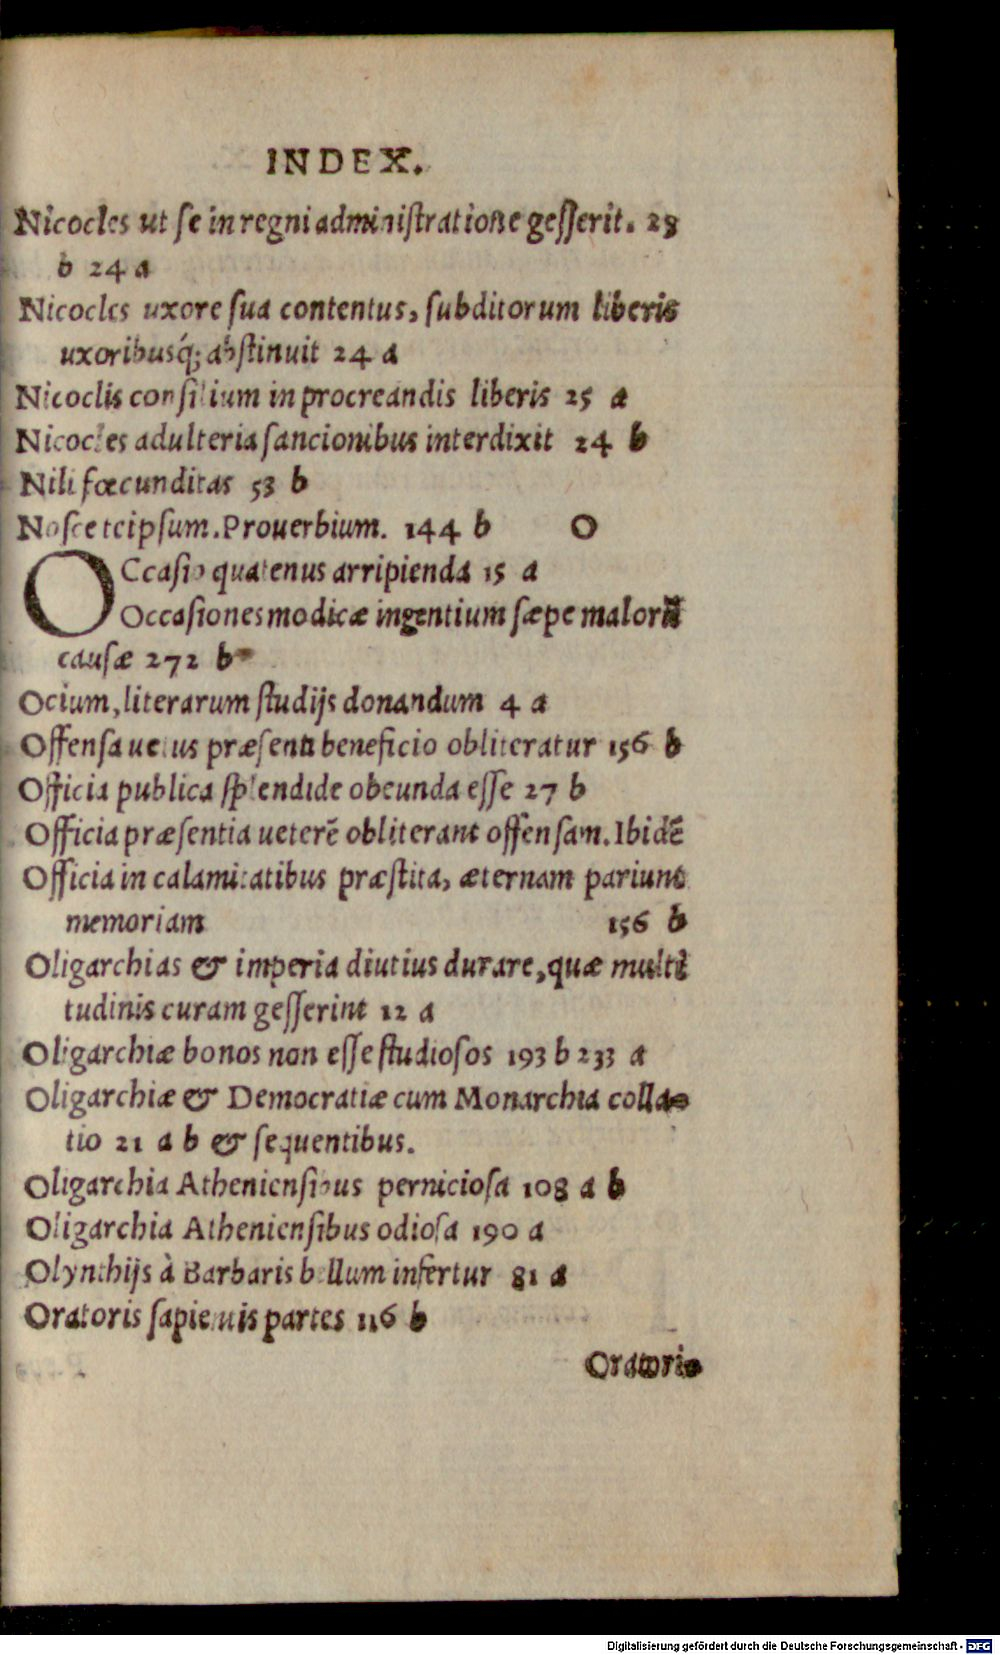 INDEX.
Nicocles ut ſe in regni adminiſtratione geſſerit. 23
b 24 a
Nicocles uxore ſua contentus, ſubditorum liberis
uxoribusq́; abſtinuit 24 a
Nicoclis conſilium in procreandis liberis 25 a
Nicocles adulteria ſancionibus interdixit 24 b
Nili fœcunditas 53 b
Noſce teipſum. Prouerbium. 144 b O
OCcaſio quatenus arripienda 15 a
Occaſiones modicæ ingentium ſæpe malorū
cauſæ 272 b
Ocium, literarum ſtudijs donandum 4 a
Offenſa uetus præſenti beneficio obliteratur 156 b
Officia publica ſplendide obeunda eſſe 27 b
Officia præſentia ueterē obliterant offenſam. Ibidē
Officia in calamitatibus præſtita, æternam pariunt
memoriam 156 b
Oligarchias & imperia diutius durare, quæ multi
tudinis curam geſſerint 12 a
Oligarchiæ bonos non eſſe ſtudioſos 193 b 233 a
Oligarchiæ & Democratiæ cum Monarchia colla-
tio 21 a b & ſequentibus.
Oligarchia Athenienſibus pernicioſa 108 a b
Oligarchia Athenienſibus odioſa 190 a
Olynthijs à Barbaris bellum infertur 81 a
Oratoris ſapientis partes 116 b
Oratori-
Digitalisierung gefördert durch die Deutsche Forschungsgemeinschaft - DFG